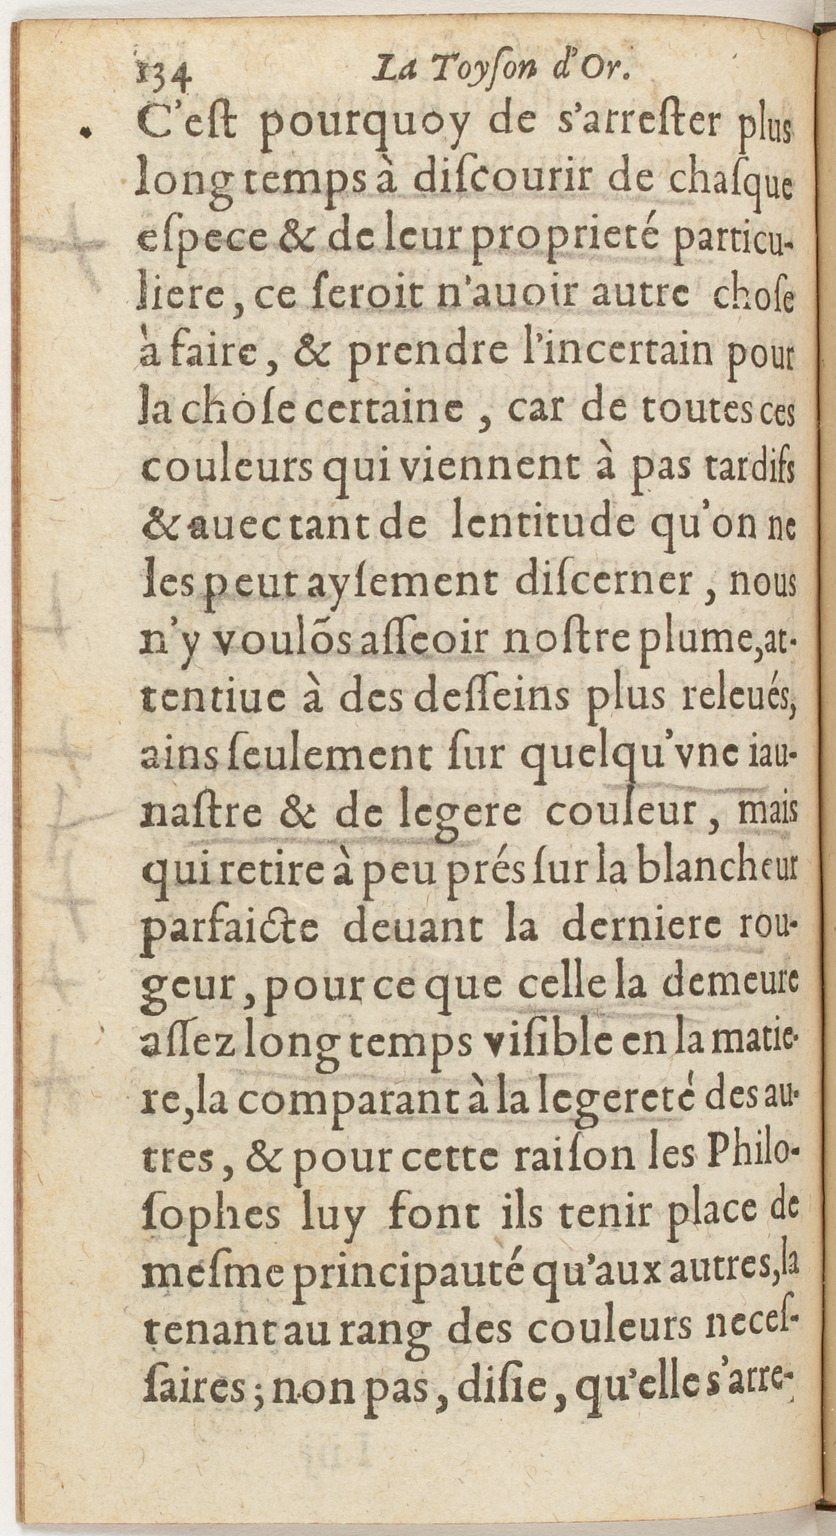 134 La Toyſon d'Or.
C'eſt pourquoy de s'arreſter plus
long temps à diſcourir de chaſque
eſpece & de leur proprieté particu-
liere, ce ſeroit n'auoir autre choſe
à faire, & prendre l'incertain pour
la choſe certaine, car de toutes ces
couleurs qui viennent à pas tardifs
& auec tant de lentitude qu'on ne
les peut ayſement diſcerner, nous
n'y voulõs aſſeoir noſtre plume, at-
tentiue à des deſſeins plus releués,
ains ſeulement ſur quelqu'vne iau-
naſtre & de legere couleur, mais
qui retire à peu prés ſur la blancheur
parfaicte deuant la derniere rou-
geur, pour ce que celle la demeure
aſſez long temps viſible en la matie-
re, la comparant à la legereté des au-
tres, & pour cette raiſon les Philo-
ſophes luy font ils tenir place de
meſme principauté qu'aux autres, la
tenant au rang des couleurs neceſ-
ſaires; non pas, diſie, qu'elle s'arre-